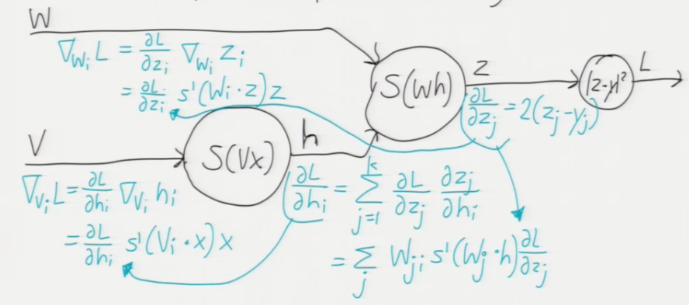 W
∇_{W_i} L = ∂L/∂z_i ∇_{W_i} z_i
= ∂L/∂z_i s'(W_i · z) z
S(Wh)
z
|z-y|²
L
∂L/∂z_j = 2(z_j - y_j)
V
S(Vx)
h
∇_{V_i} L = ∂L/∂h_i ∇_{V_i} h_i
= ∂L/∂h_i s'(V_i · x) x
∂L/∂h_i = ∑_{j=1}^{k} ∂L/∂z_j ∂z_j/∂h_i
= ∑_j W_{ji} s'(W_j · h) ∂L/∂z_j